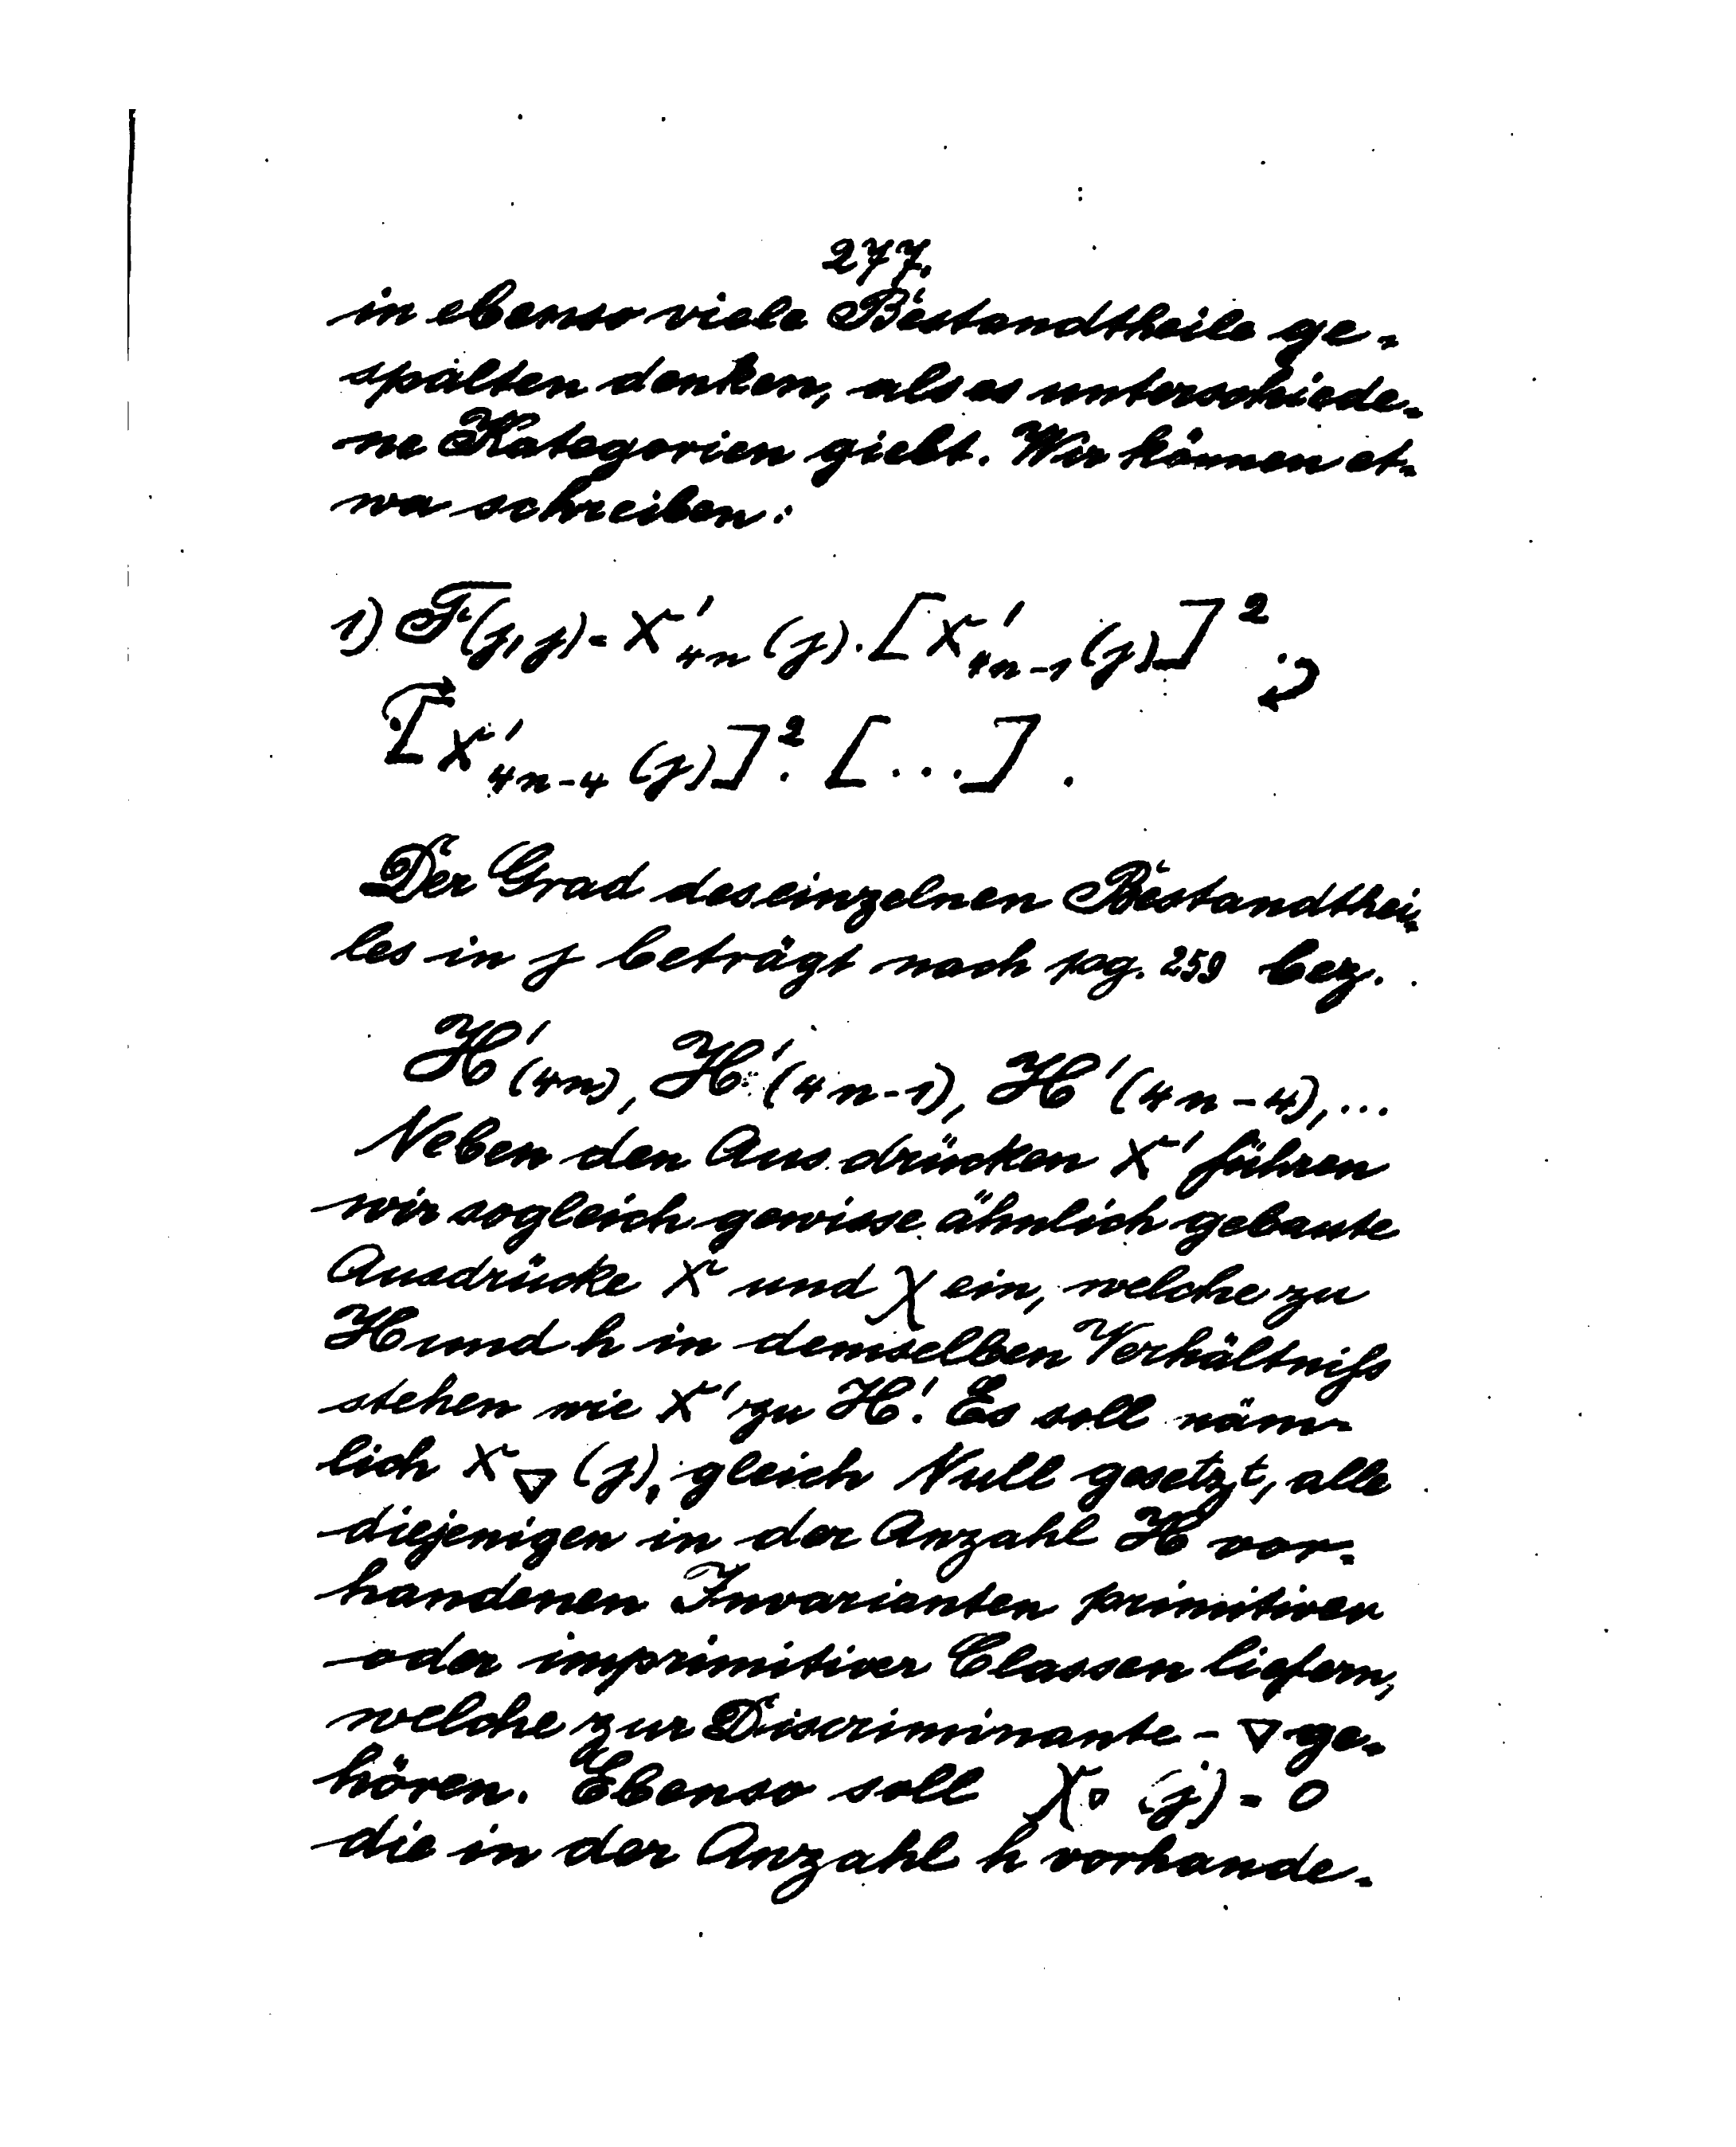 277.
in ebenso viele Bestandtheile ge-
spalten denken, als es unterschiede-
ne Kategorien giebt. Wir können et-
wa schreiben:
1) F(j,j) = X'₄ₙ(j). [X'₄ₙ₋₁(j)]²
[X'₄ₙ₋₄(j)]². [...].
Der Grad des einzelnen Bestandthei-
les in j beträgt nach pag. 259 bez.
H'(4n), H'(4n-1), H'(4n-4),...
Neben den Ausdrücken X' führen
wir sogleich gewisse ähnlich gebaute
Ausdrücke X und χ ein, welche zu
H und h in demselben Verhältniſs
stehen wie X' zu H'. Es soll näm-
lich X▽(j), gleich Null gesetzt, alle
diejenigen in der Anzahl H vor-
handenen Invarianten primitiver
oder imprimitiver Classen liefern,
welche zur Discriminante -▽ ge-
hören. Ebenso soll χ▽(j) = 0
die in der Anzahl h vorhande-